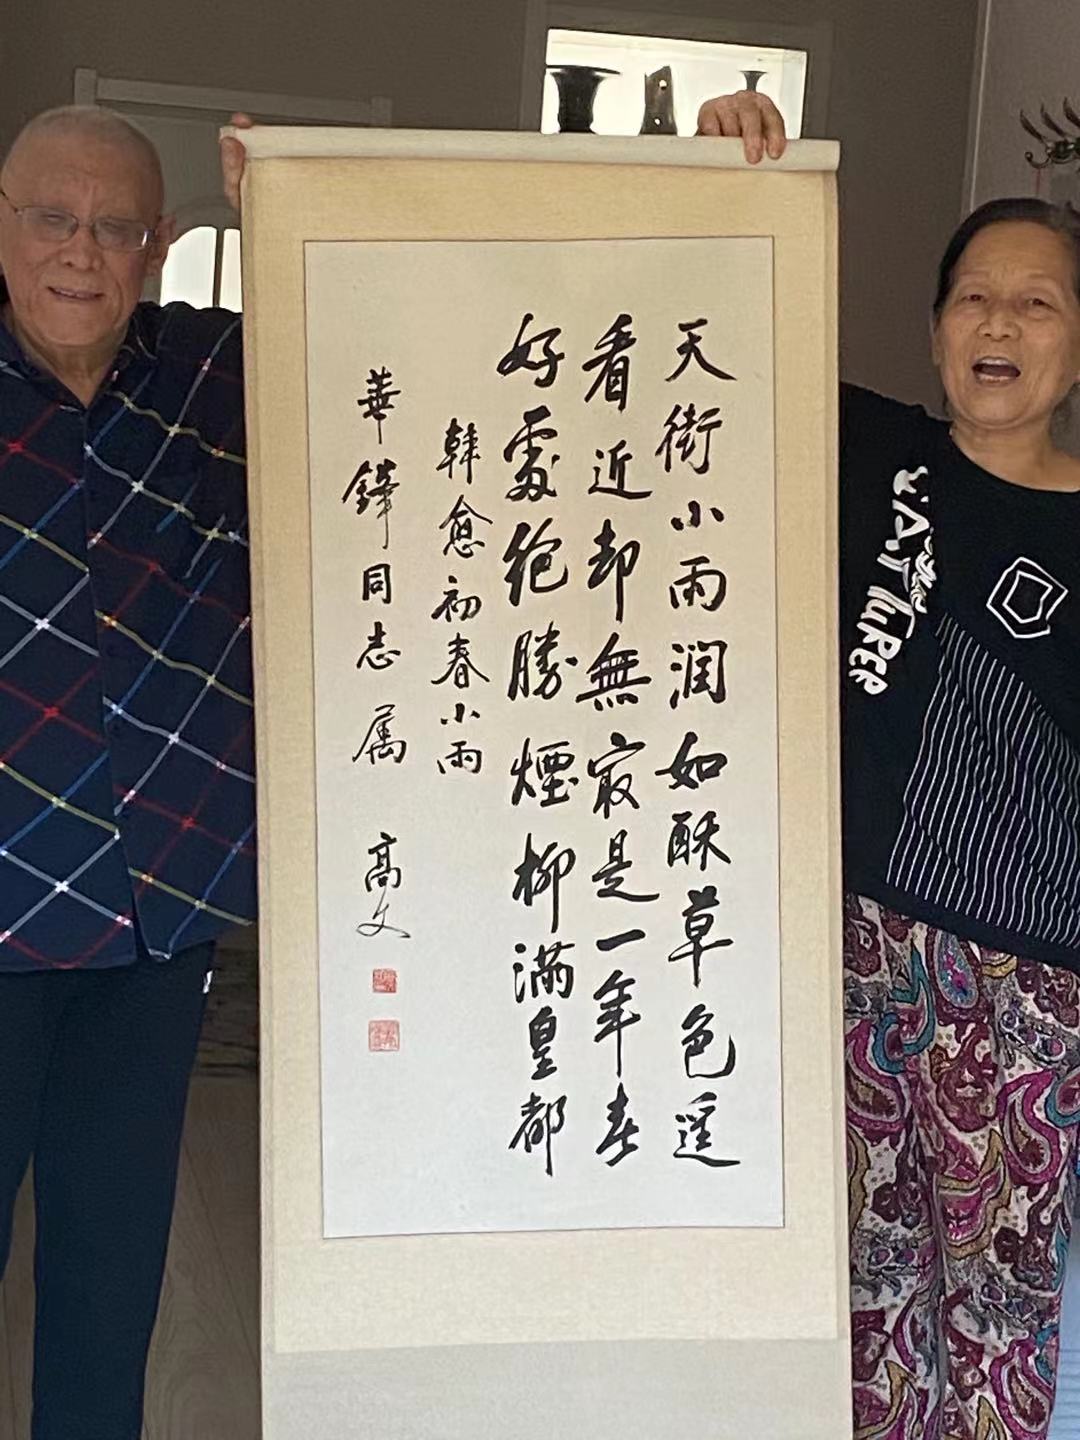 天街小雨润如酥草色遥
看近却無最是一年春
好處绝勝煙柳满皇都
韓愈初春小雨
華鋒同志属
高文